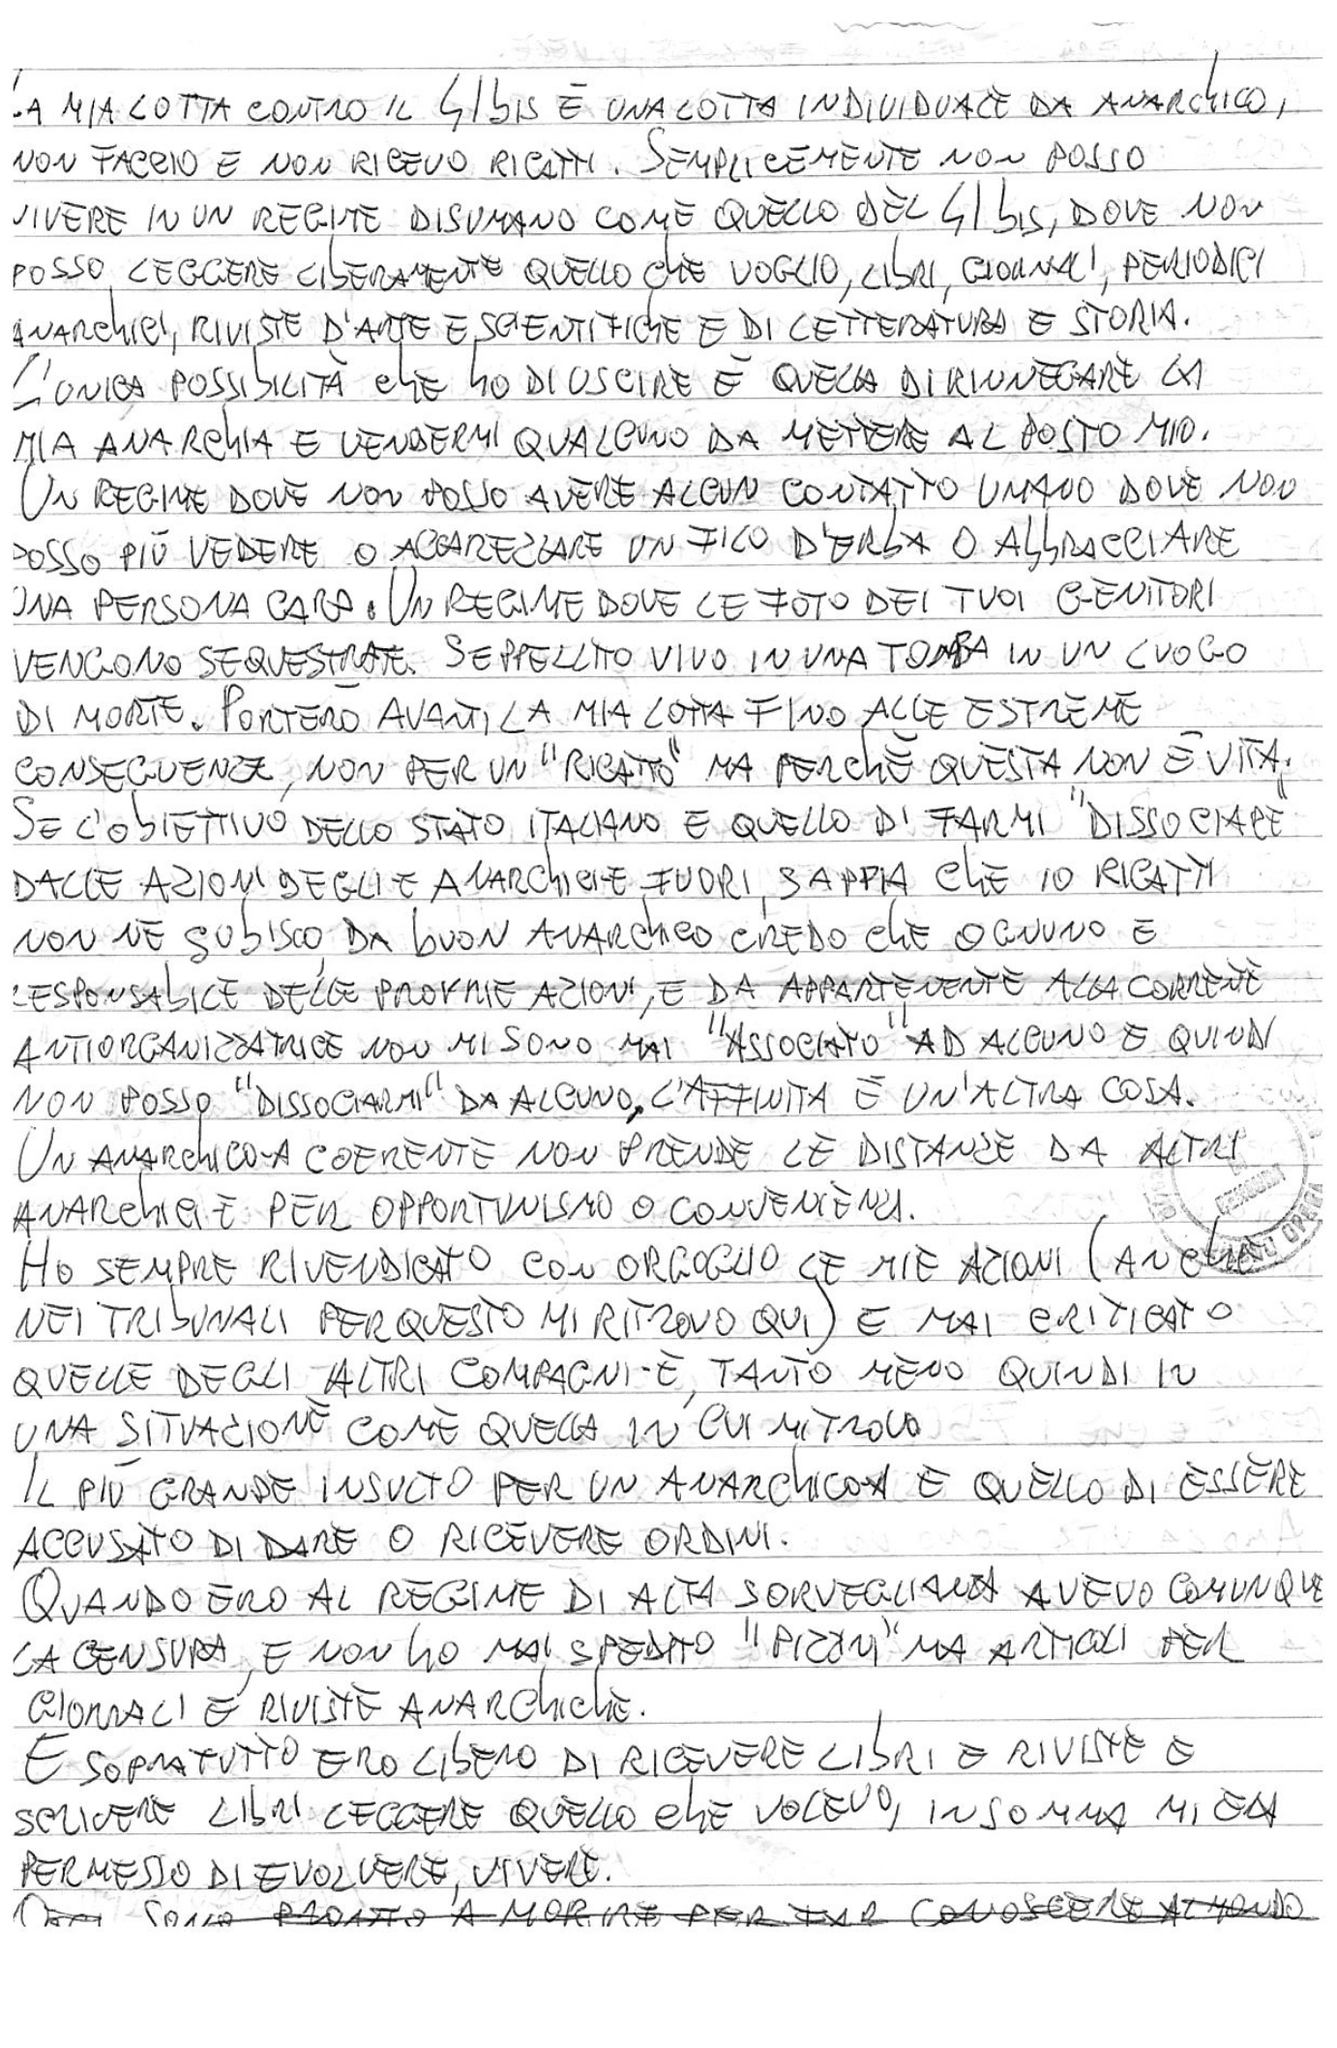 LA MIA LOTTA CONTRO IL 41bis È UNA LOTTA INDIVIDUALE DA ANARCHICO,
NON FACCIO E NON RICEVO RICATTI. SEMPLICEMENTE NON POSSO
VIVERE IN UN REGIME DISUMANO COME QUELLO DEL 41bis, DOVE NON
POSSO LEGGERE LIBERAMENTE QUELLO CHE VOGLIO, LIBRI, GIORNALI, PERIODICI
ANARCHICI, RIVISTE D'ARTE E SCIENTIFICHE E DI LETTERATURA E STORIA.
L'UNICA POSSIBILITÀ CHE HO DI USCIRE È QUELLA DI RINNEGARE LA
MIA ANARCHIA E VENDERMI QUALCUNO DA METTERE AL POSTO MIO.
UN REGIME DOVE NON POSSO AVERE ALCUN CONTATTO UMANO DOVE NON
POSSO PIÙ VEDERE O ACCAREZZARE UN FILO D'ERBA O ABBRACCIARE
UNA PERSONA CARA. UN REGIME DOVE LE FOTO DEI TUOI GENITORI
VENGONO SEQUESTRATE. SEPPELLITO VIVO IN UNA TOMBA IN UN LUOGO
DI MORTE. PORTERÒ AVANTI LA MIA LOTTA FINO ALLE ESTREME
CONSEGUENZE, NON PER UN "RICATTO" MA PERCHÈ QUESTA NON È VITA.
SE L'OBIETTIVO DELLO STATO ITALIANO E QUELLO DI FARMI "DISSOCIARE"
DALLE AZIONI DEGLI-E ANARCHICI-E FUORI, SAPPIA CHE IO RICATTI
NON NE SUBISCO, DA BUON ANARCHICO CREDO CHE OGNUNO E
RESPONSABILE DELLE PROPRIE AZIONI, E DA APPARTENENTE ALLA CORRENTE
ANTIORGANIZZATRICE NON MI SONO MAI "ASSOCIATO" AD ALCUNO E QUINDI
NON POSSO "DISSOCIARMI" DA ALCUNO, L'AFFINITÀ È UN'ALTRA COSA.
UN ANARCHICO-A COERENTE NON PRENDE LE DISTANZE DA ALTRI
ANARCHICI-E PER OPPORTUNISMO O CONVENIENZA.
HO SEMPRE RIVENDICATO CON ORGOGLIO LE MIE AZIONI (ANCHE
NEI TRIBUNALI PER QUESTO MI RITROVO QUI) E MAI CRITICATO
QUELLE DEGLI ALTRI COMPAGNI-E, TANTO MENO QUINDI IN
UNA SITUAZIONE COME QUELLA IN CUI MI TROVO
IL PIÙ GRANDE INSULTO PER UN ANARCHICO-A E QUELLO DI ESSERE
ACCUSATO DI DARE O RICEVERE ORDINI.
QUANDO ERO AL REGIME DI ALTA SORVEGLIANZA AVEVO COMUNQUE
LA CENSURA, E NON HO MAI SPEDITO "PIZZINI" MA ARTICOLI PER
GIORNALI E RIVISTE ANARCHICHE.
E SOPRATUTTO ERO LIBERO DI RICEVERE LIBRI E RIVISTE E
SCRIVERE LIBRI LEGGERE QUELLO CHE VOLEVO, INSOMMA MI ERA
PERMESSO DI EVOLVERE, VIVERE.
OGGI SONO PRONTO A MORIRE PER FAR CONOSCERE AL MONDO